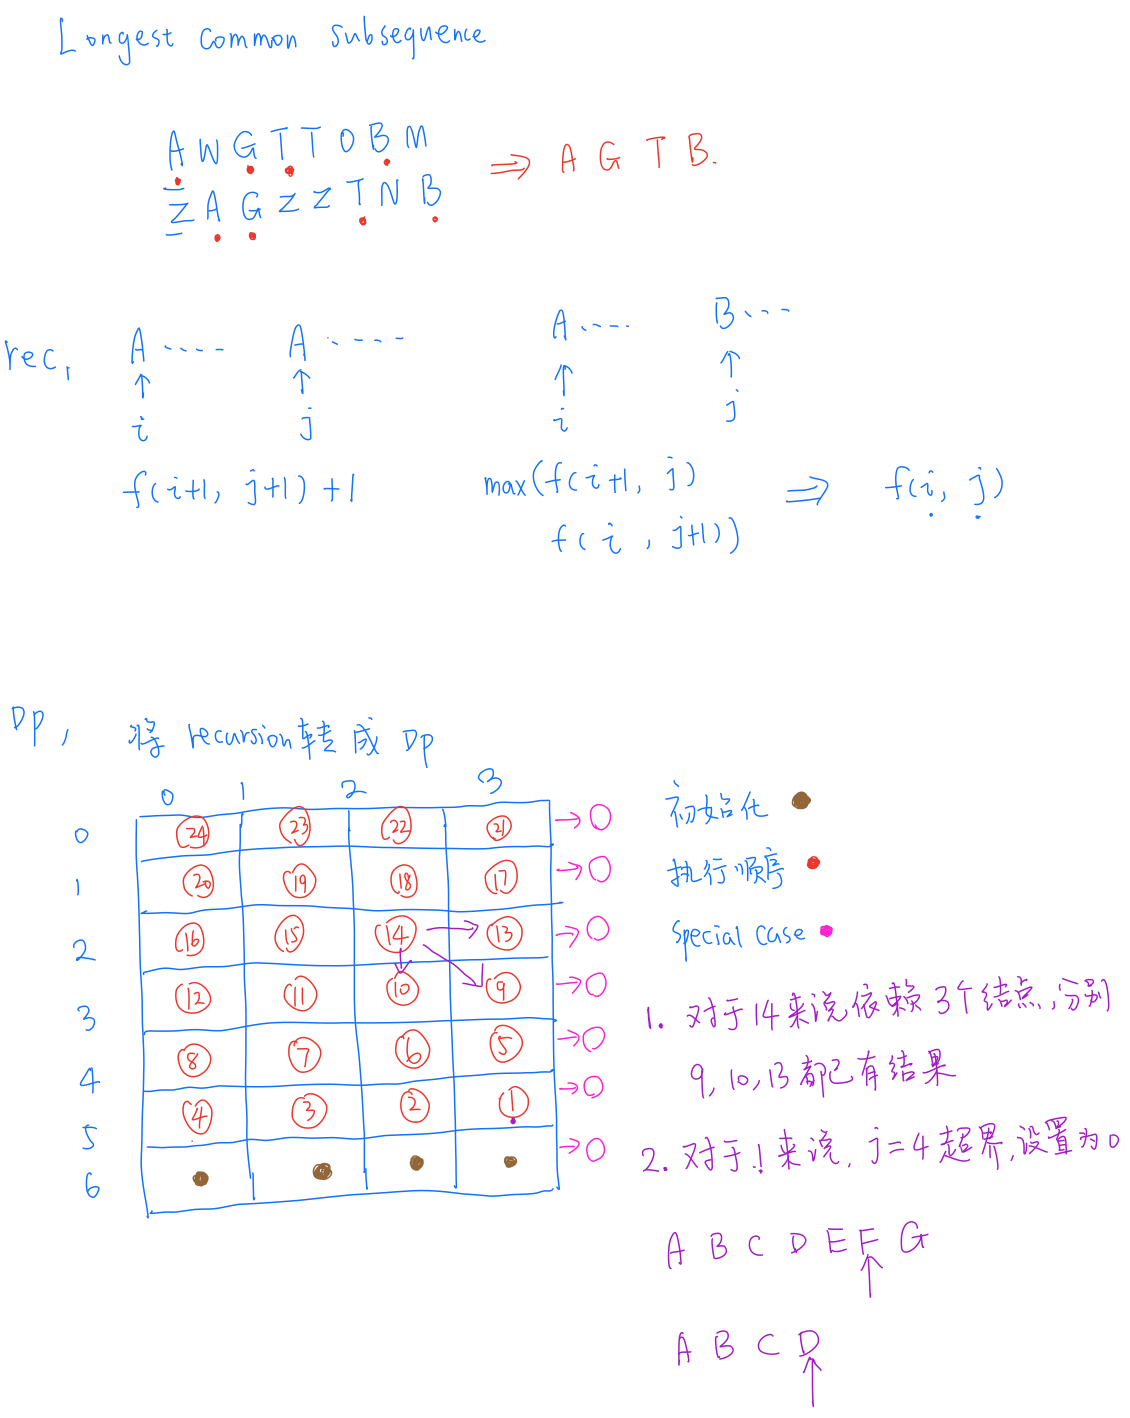 Longest common subsequence
A W G T T O B M
⇒ A G T B.
Z A G Z Z T N B
rec,
A ---- A ----- A ---- B ---
↑ ↑ ↑ ↑
i j i j
f(i+1, j+1) +1
max(f(i+1, j)
f(i, j+1))
⇒ f(i, j)
Dp, 将 recursion转成 Dp
0 1 2 3
0 24 23 22 21 → 0
1 20 19 18 17 → 0
2 16 15 14 13 → 0
3 12 11 10 9 → 0
4 8 7 6 5 → 0
5 4 3 2 1 → 0
6 → 0
初始化
执行顺序
Special Case
1. 对于14来说依赖3个结点,分别
9, 10, 13 都已有结果
2. 对于1来说, j=4 超界,设置为0
A B C D E F G
↑
A B C D
↑